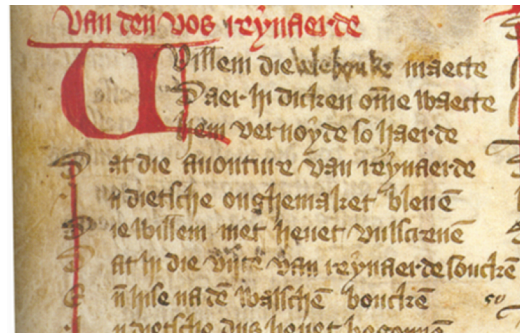 van den vos reynaerde
Willem die vele bouke maecte
Daer hi dicken om̄e waecte
Hem vernoyde so haerde
Dat die auonture van reynaerde
In dietsche onghemaket bleuē
Die willem niet heuet vulscreuē
Dat hi die vijte van reynaerde souckē
En̄ hise na dē walschē bouckē
In dietsche dus heuet begonnē